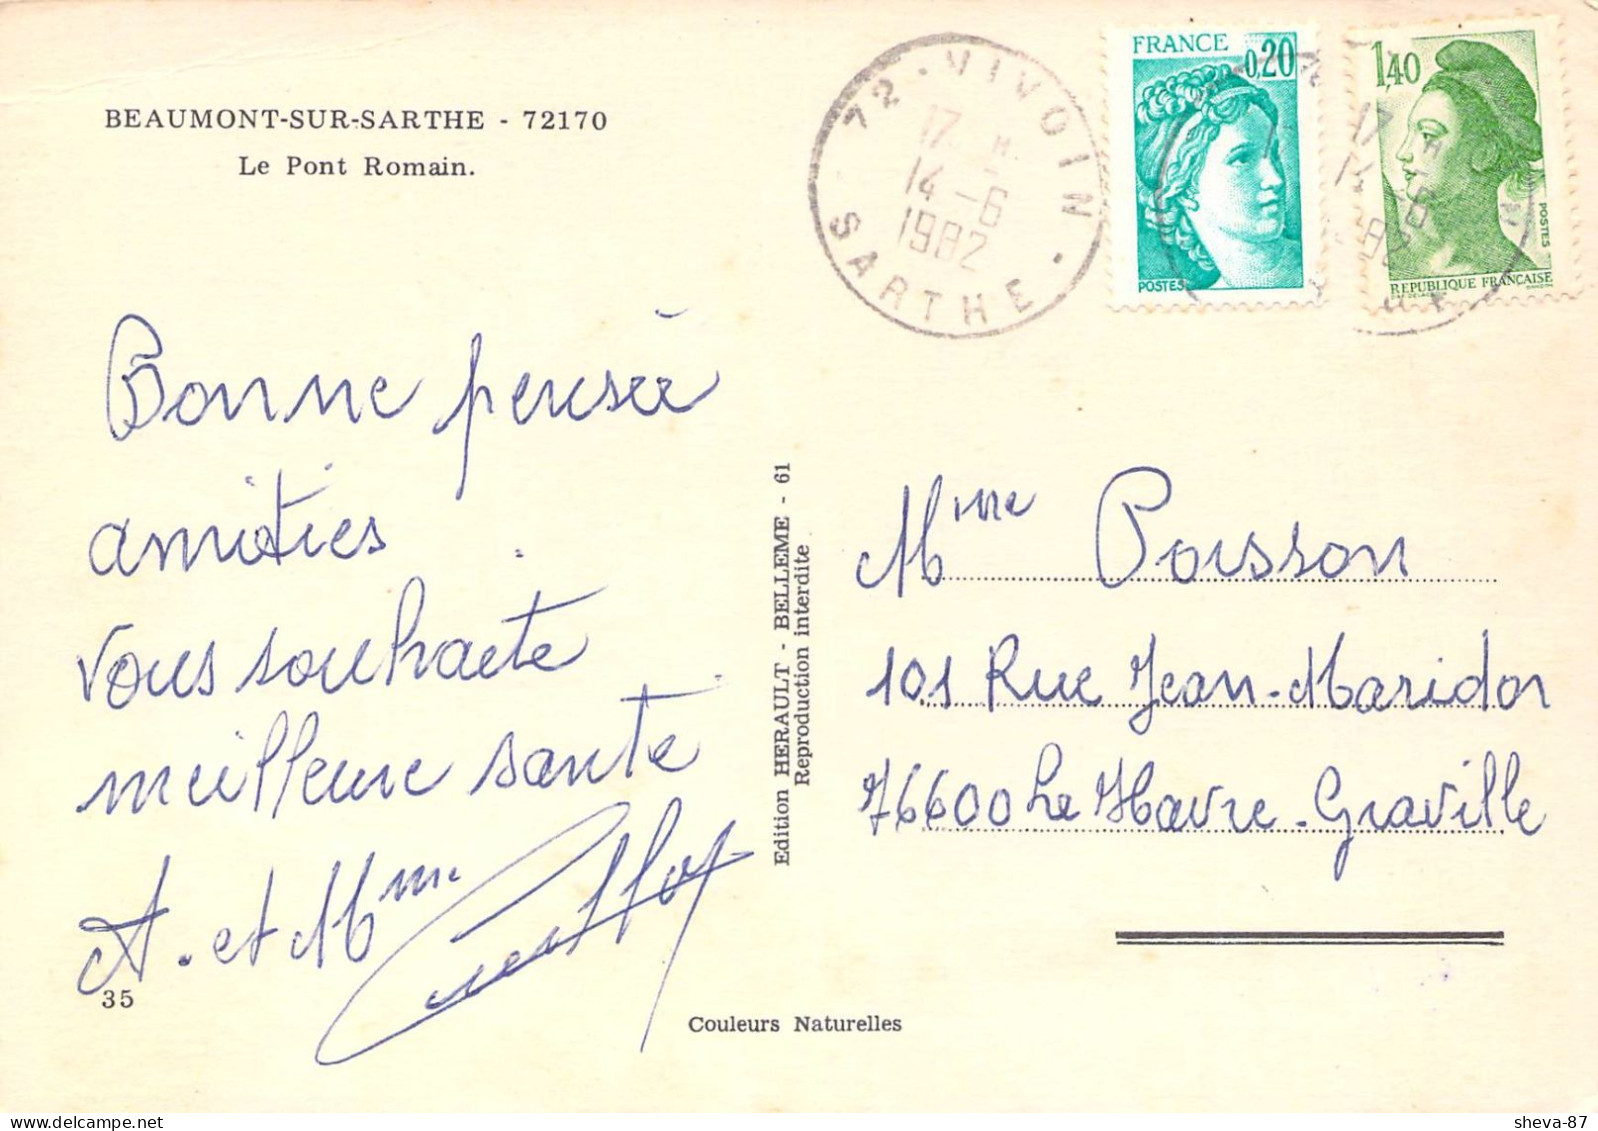 BEAUMONT-SUR-SARTHE - 72170
Le Pont Romain.
72 - VIVOIN -
17 H
14 - 6
1982
SARTHE
FRANCE
0,20
POSTES
1,40
POSTES
REPUBLIQUE FRANÇAISE
Bonne pensée
amitiés
vous souhaite
meilleure santé
A. et Mme
35
Edition HERAULT - BELLEME - 61
Reproduction interdite
Mme Poisson
101 Rue Jean-Maridor
76600 Le Havre-Graville
Couleurs Naturelles
sheva-87